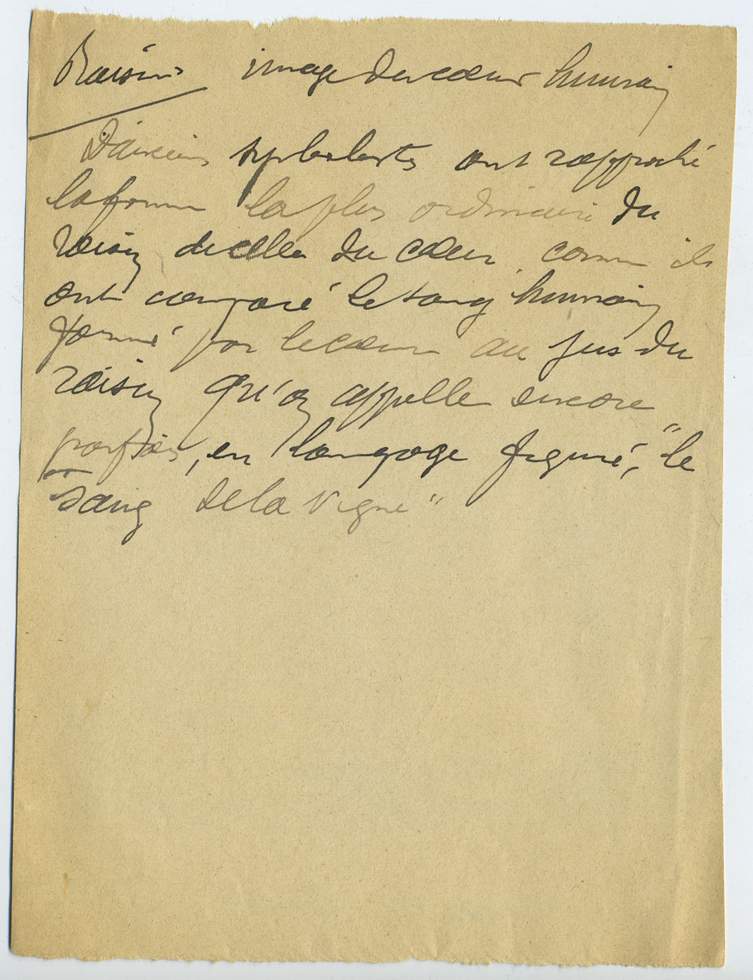 Raisins image du cœur humain
D'anciens symbolistes ont rapproché
la forme la plus ordinaire du
raisin de celle du cœur comme ils
ont comparé le sang humain
formé par le cœur au jus du
raisin qu'on appelle encore
parfois, en langage figuré, "le
sang de la vigne"